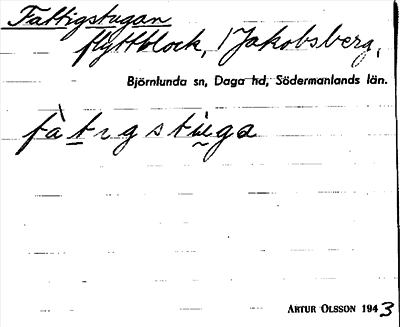 Fattigstugan
flyttblock, /Jakobsberg,
Björnlunda sn, Daga hd, Södermanlands län.
fàtıgstùga
ARTUR OLSSON 1943